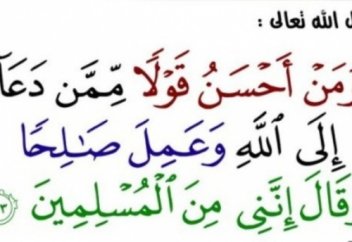 ل الله تعالى :
وَمَنْ أَحْسَنُ قَوْلًا مِّمَّن دَعَآ
إِلَى ٱللَّهِ وَعَمِلَ صَـٰلِحًا
وَقَالَ إِنَّنِى مِنَ ٱلْمُسْلِمِينَ